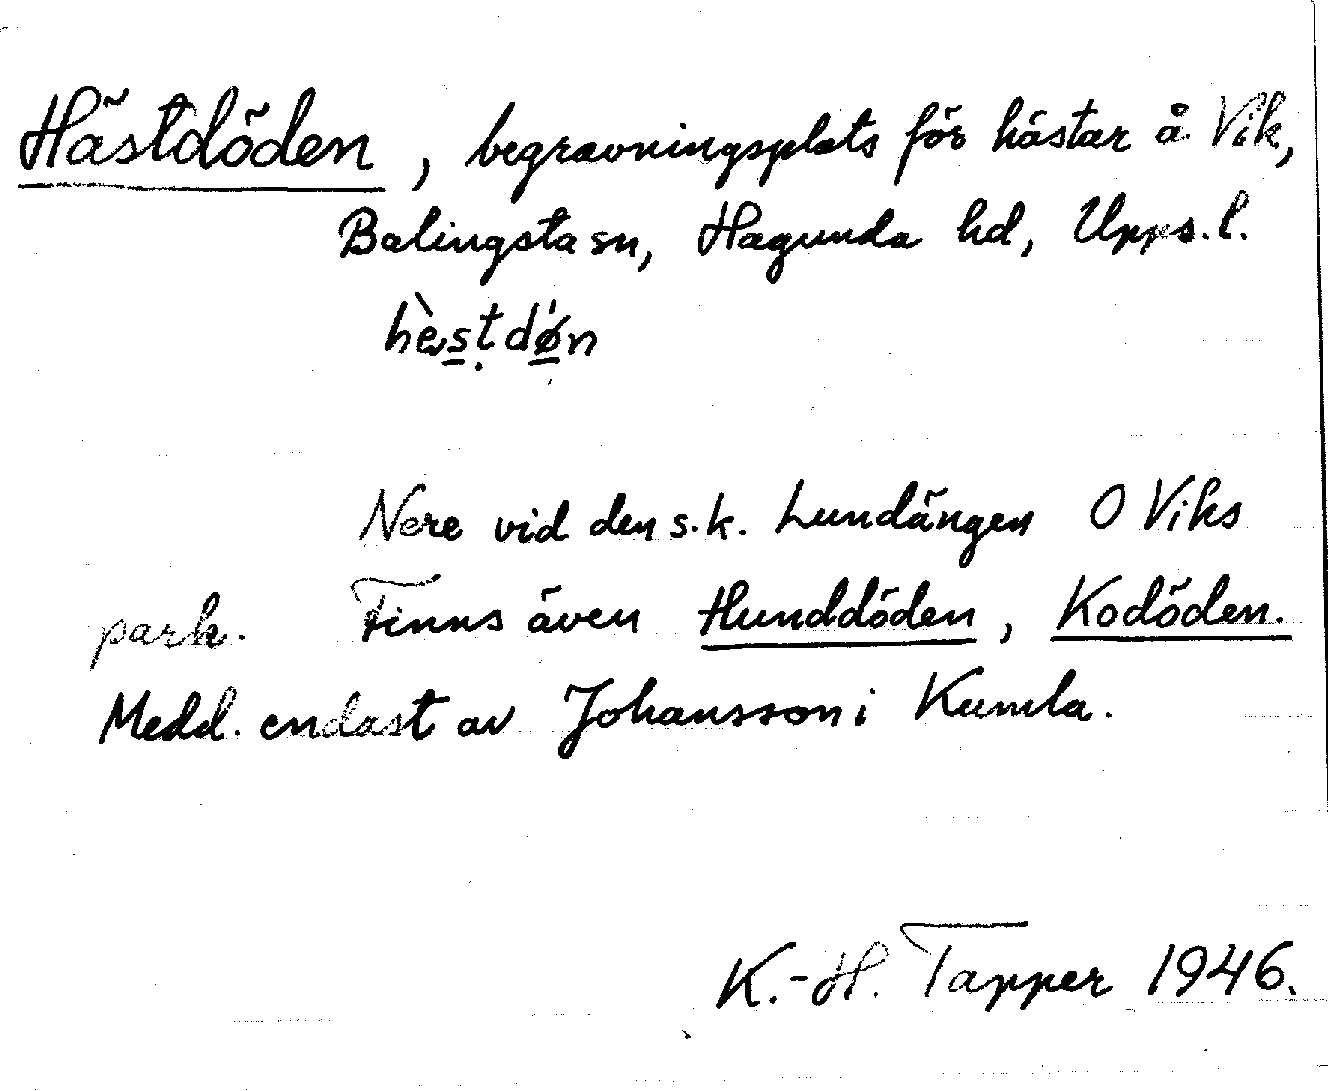 Hästdöden, begravningsplats för hästar å Vik,
Balingsta sn, Hagunda hd, Upps. l.
hὲstdǿn
Nere vid den s.k. Lundängen O Viks
park. Finns även Hunddöden, Kodöden.
Medd. endast av Johansson i Kumla.
K.-H. Tapper 1946.